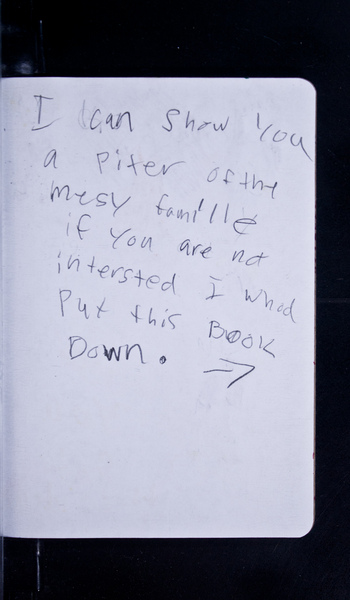 I can show You
a piter of the
mesy famille
if You are not
intersted I whod
Put this Book
Down. →